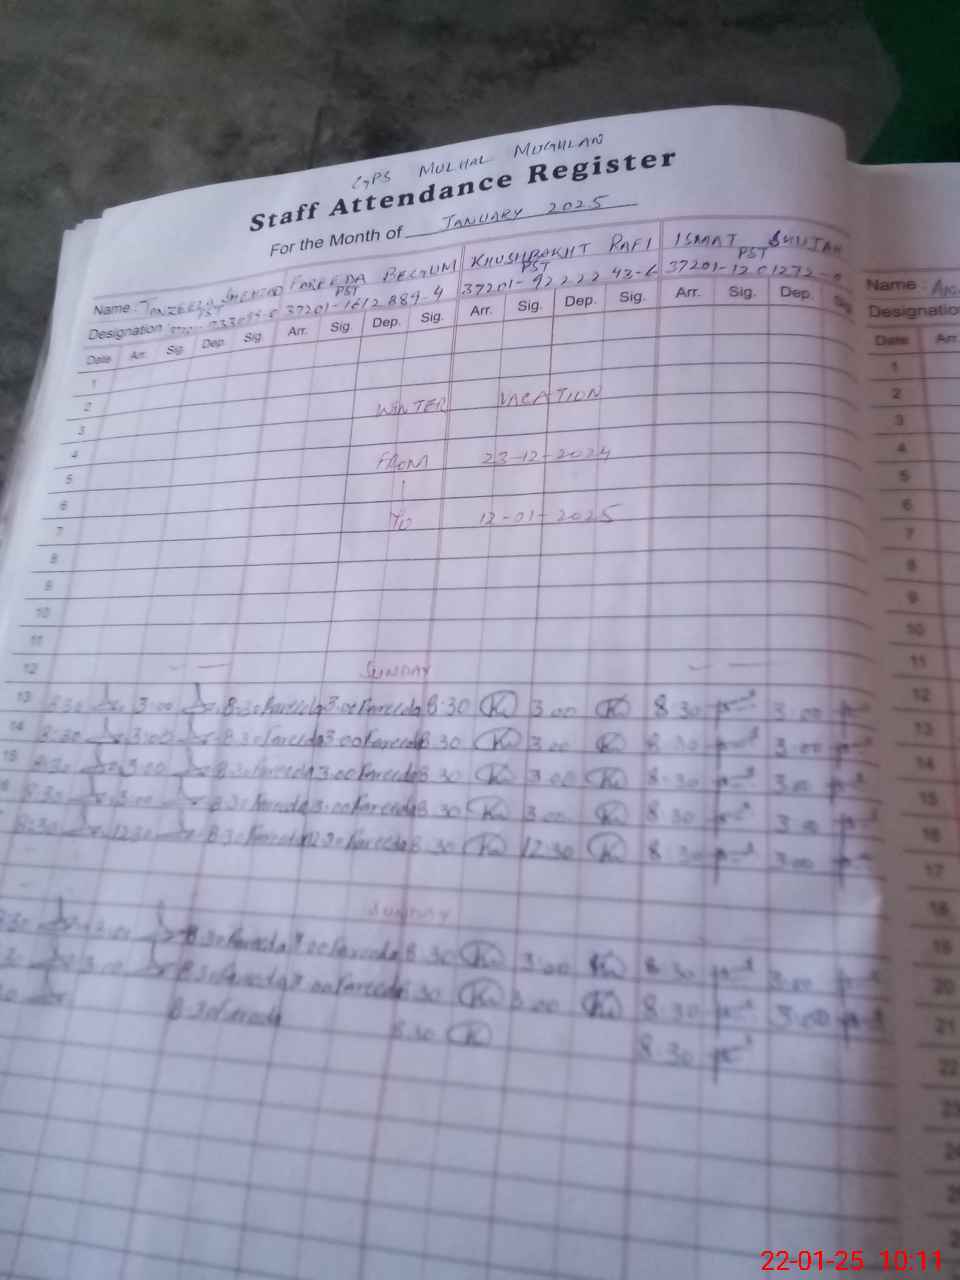 GPS MULHAL MUGHLAN
Staff Attendance Register
For the Month of JANUARY 2025
Name: TANZEELA SHEHZAD FAREEDA BEGUM KHUSHBAKHT RAFI ISMAT SHUJAH
PST PST PST PST
Designation 37201-1612889-4 37201-9222243-6 37201-1201272-0
Date Arr. Sig. Dep. Sig. Arr. Sig. Dep. Sig. Arr. Sig. Dep. Sig. Arr. Sig. Dep. Sig.
1
2 WINTER VACATION
3
4 FROM 23-12-2024
5
6 TO 12-01-2025
7
8
9
10
11
12 SUNDAY
13 8:30 3:00 8:30 Fareeda 3:00 Fareeda 8:30 K 3:00 K 8:30 3:00
14 8:30 3:00 8:30 Fareeda 3:00 Fareeda 8:30 K 3:00 K 8:30 3:00
15 8:30 3:00 8:30 Fareeda 3:00 Fareeda 8:30 K 3:00 K 8:30 3:00
8:30 3:00 8:30 Fareeda 3:00 Fareeda 8:30 K 3:00 K 8:30 3:00
8:30 12:30 8:30 Fareeda 12:30 Fareeda 8:30 K 12:30 K 8:30 3:00
SUNDAY
8:30 3:00 8:30 Fareeda 3:00 Fareeda 8:30 K 3:00 K 8:30 3:00
3:00 8:30 Fareeda 3:00 Fareeda 8:30 K 3:00 K 8:30 3:00
8:30 Fareeda 8:30 K 8:30
Name:
Designation
Date Arr.
1
2
3
4
5
6
7
8
9
10
11
12
13
14
15
16
17
18
19
20
21
22
23
24
22-01-25 10:11